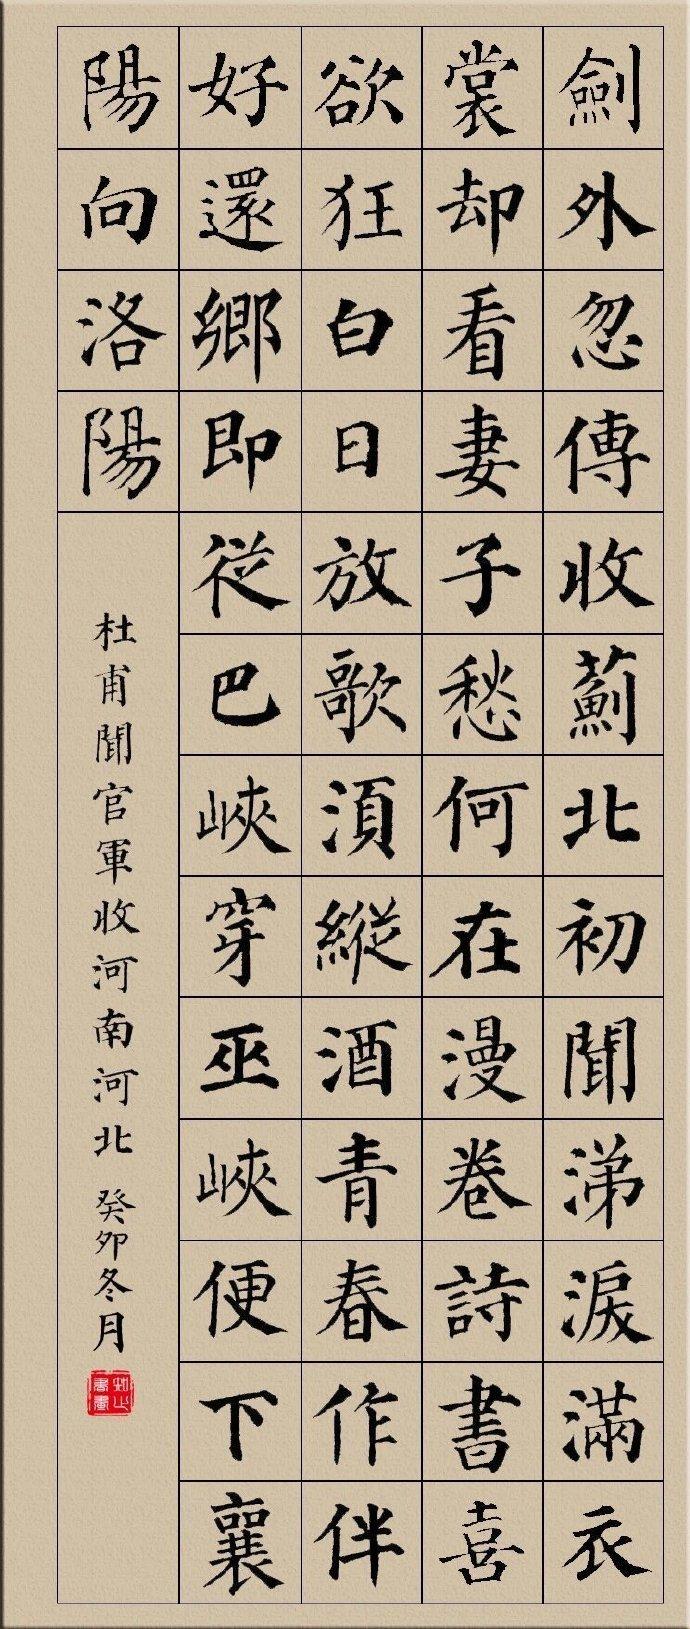 劍外忽傳收薊北初聞涕淚滿衣
裳却看妻子愁何在漫卷詩書喜
欲狂白日放歌湏縱酒青春作伴
好還鄉即從巴峽穿巫峽便下襄
陽向洛陽
杜甫聞官軍收河南河北 癸卯冬月